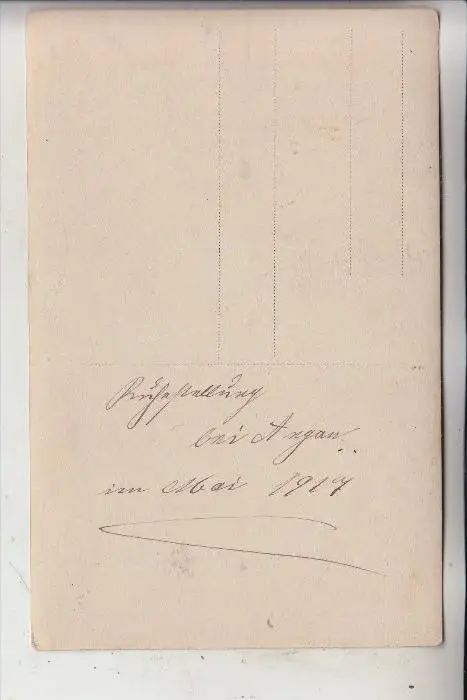 Ruhestellung
bei Argan
im Mai 1917